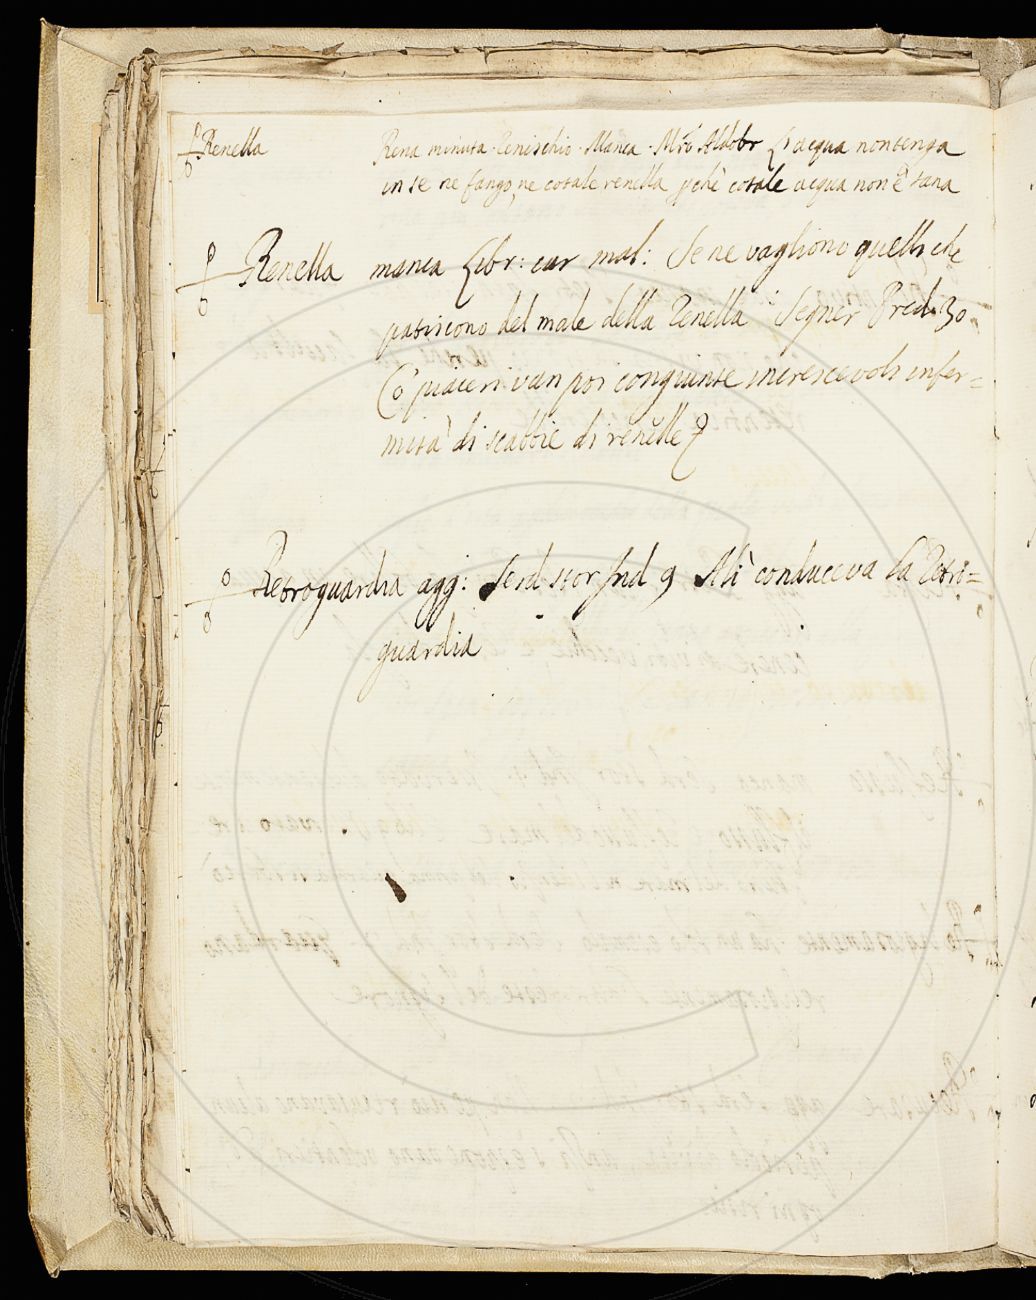 Renella Rena minuta. Renischio. Manca. Mro Aldobr L'acqua non tenga
in se ne fango, ne cotale renella pchè cotale acqua non è sana
Renella manca Libr: cur mal: Se ne vagliono quelli che
patiscono del male della Renella Segner Pred. 30
Cō piaceri van poi congiunte increscevoli infer=
mità di scabbie di renelle
Retroguardia agg: Serd stor Ind 9 Alì conduceva la Retri=
guardia